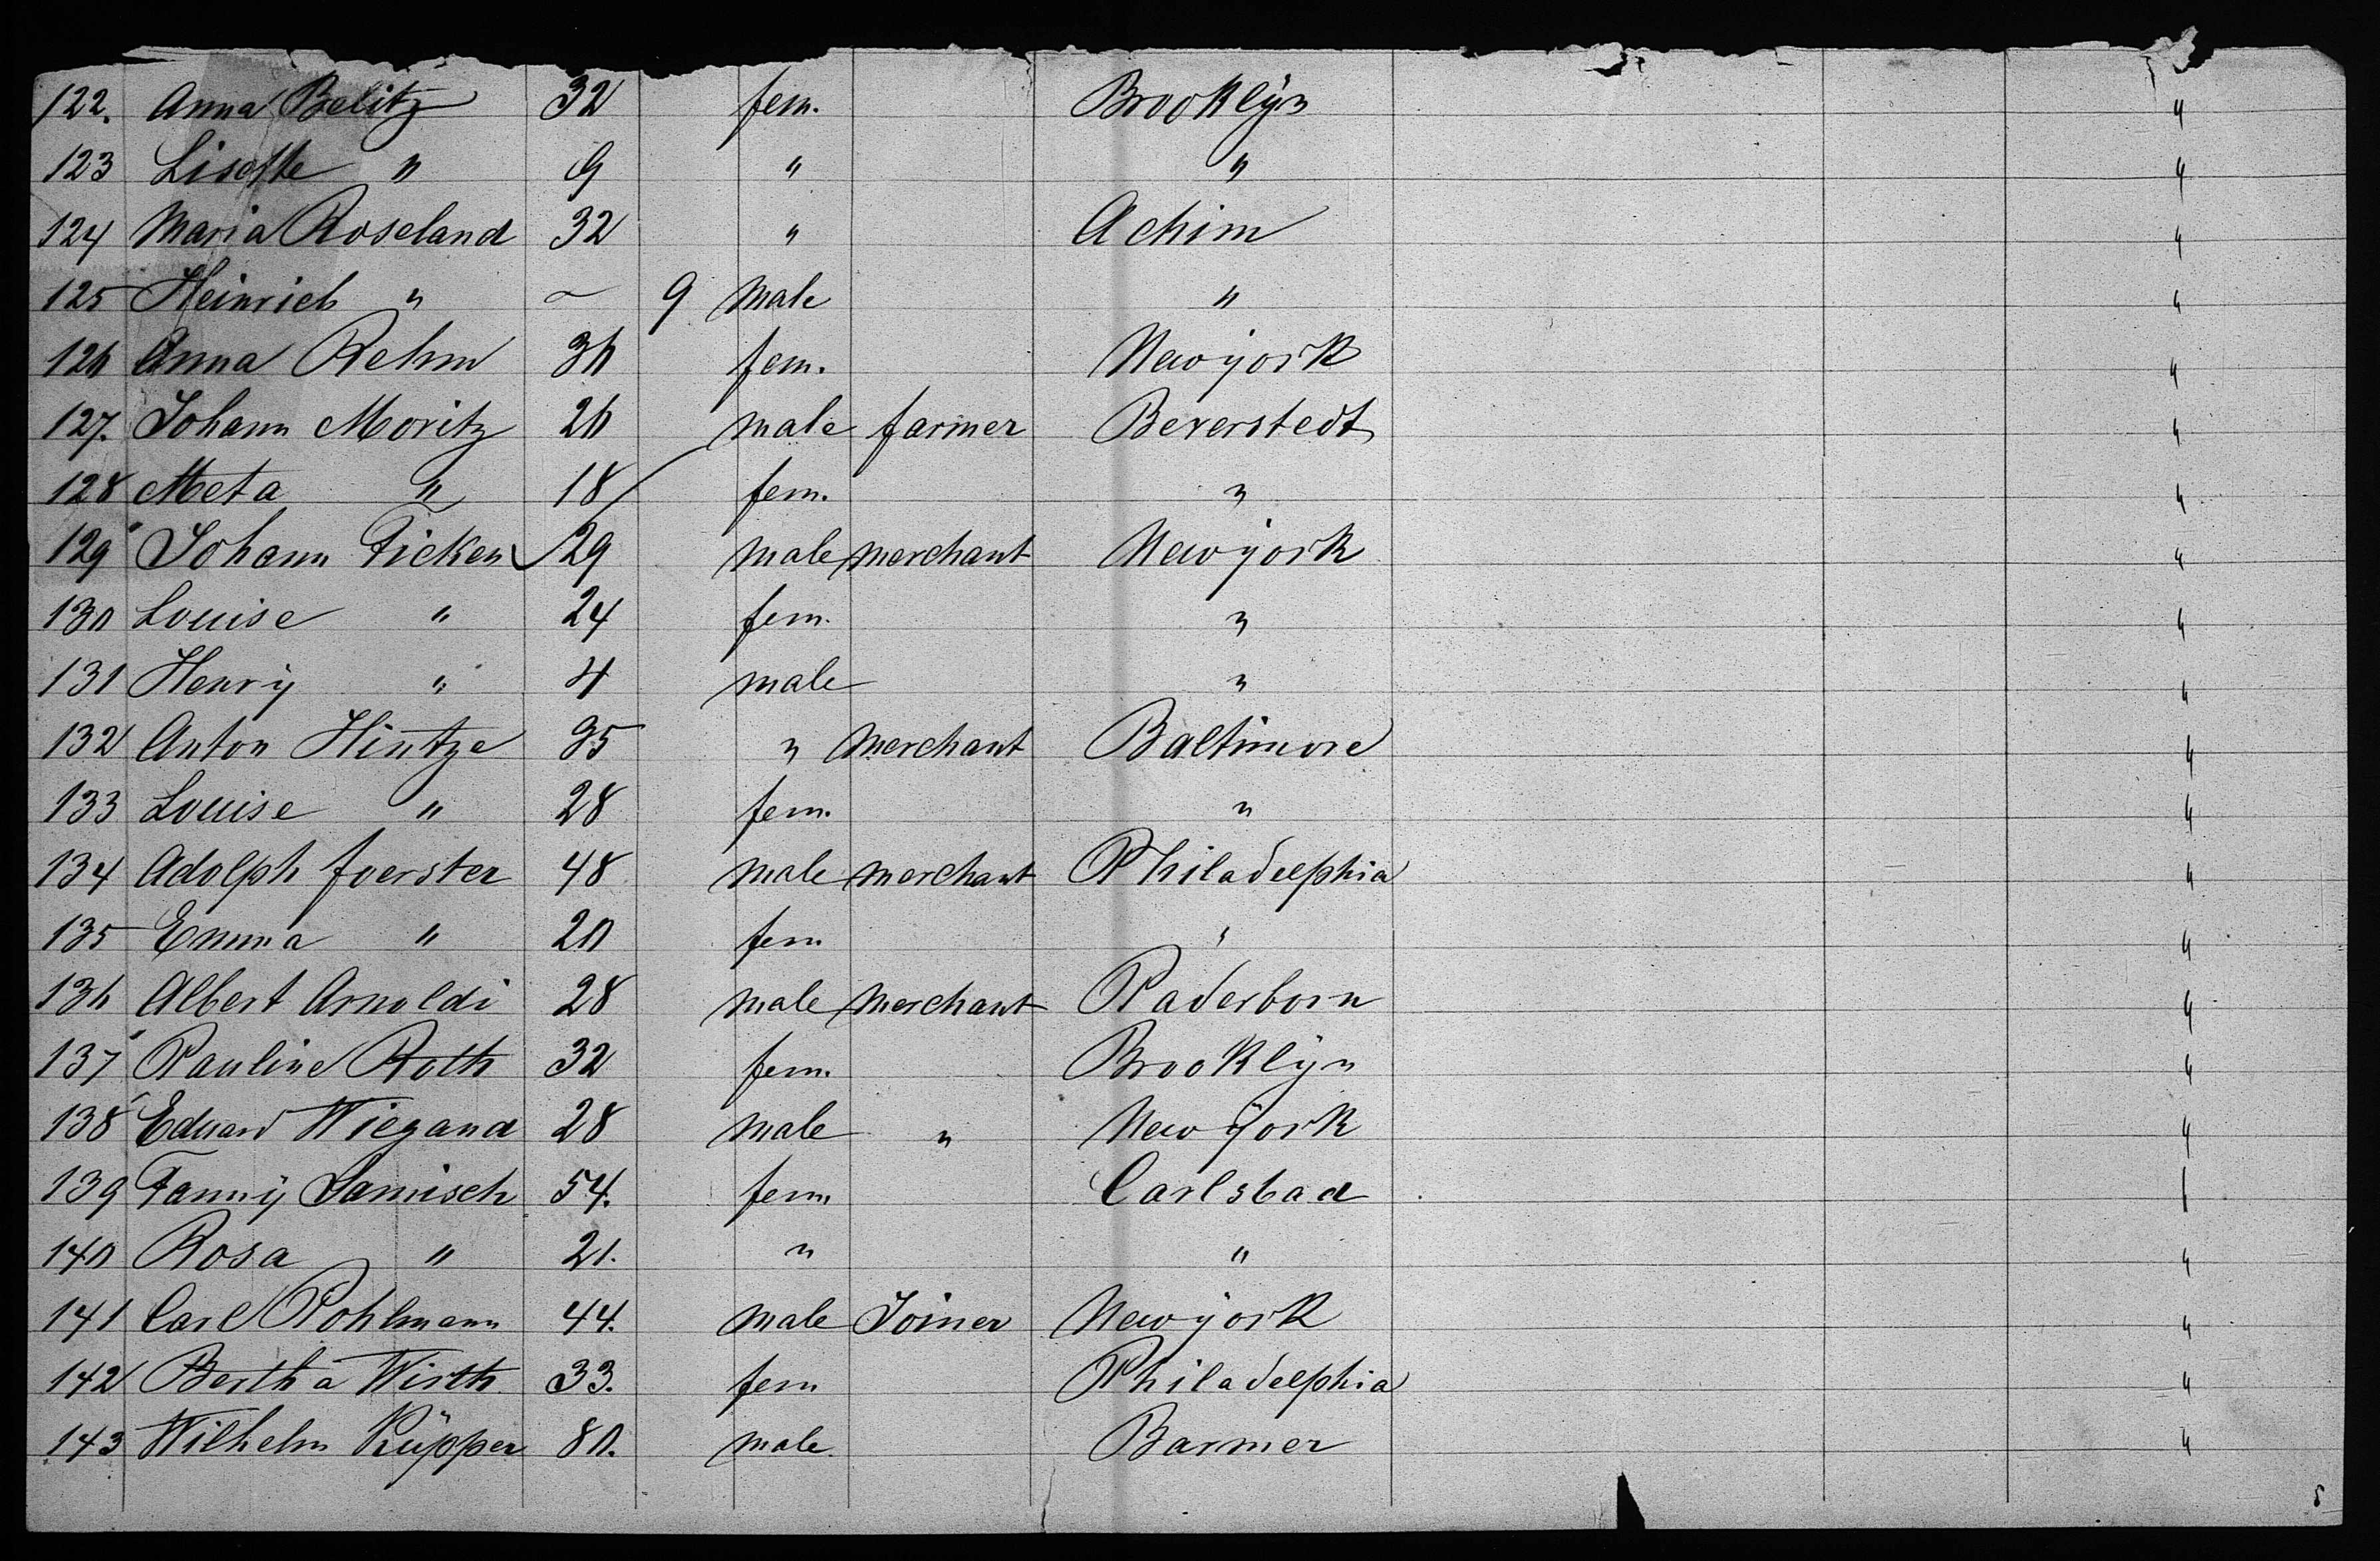 122. Anna Belitz 32 fem. Brooklÿn "
123 Lisette " 9 " " "
124 Maria Roseland 32 " Achim "
125 Heinrich " ~ 9 male " "
126 Anna Rehm 36 fem. Newÿork "
127. Johann Moritz 26 male farmer Beverstedt "
128 Meta " 18 fem. " "
129 Johann Ficken 29 male merchant Newÿork "
130 Louise " 24 fem. " "
131 Henrÿ " 4 male " "
132 Anton Hintze 35 " merchant Baltimore "
133 Louise " 28 fem. " "
134 Adolph foerster 48 male merchant Philadelphia "
135 Emma " 20 fem " "
136 Albert Arnoldi 28 male merchant Paderborn "
137 Pauline Roth 32 fem. Brooklÿn "
138 Eduard Wiegand 28 male " Newÿork "
139 Fannÿ Samisch 54. fem Carlsbad "
140 Rosa " 21. " " "
141 Carl Pohlmann 44. male Joiner Newÿork "
142 Bertha Wirth 33. fem Philadelphia "
143 Wilhelm Küpper 80. male Barmer "